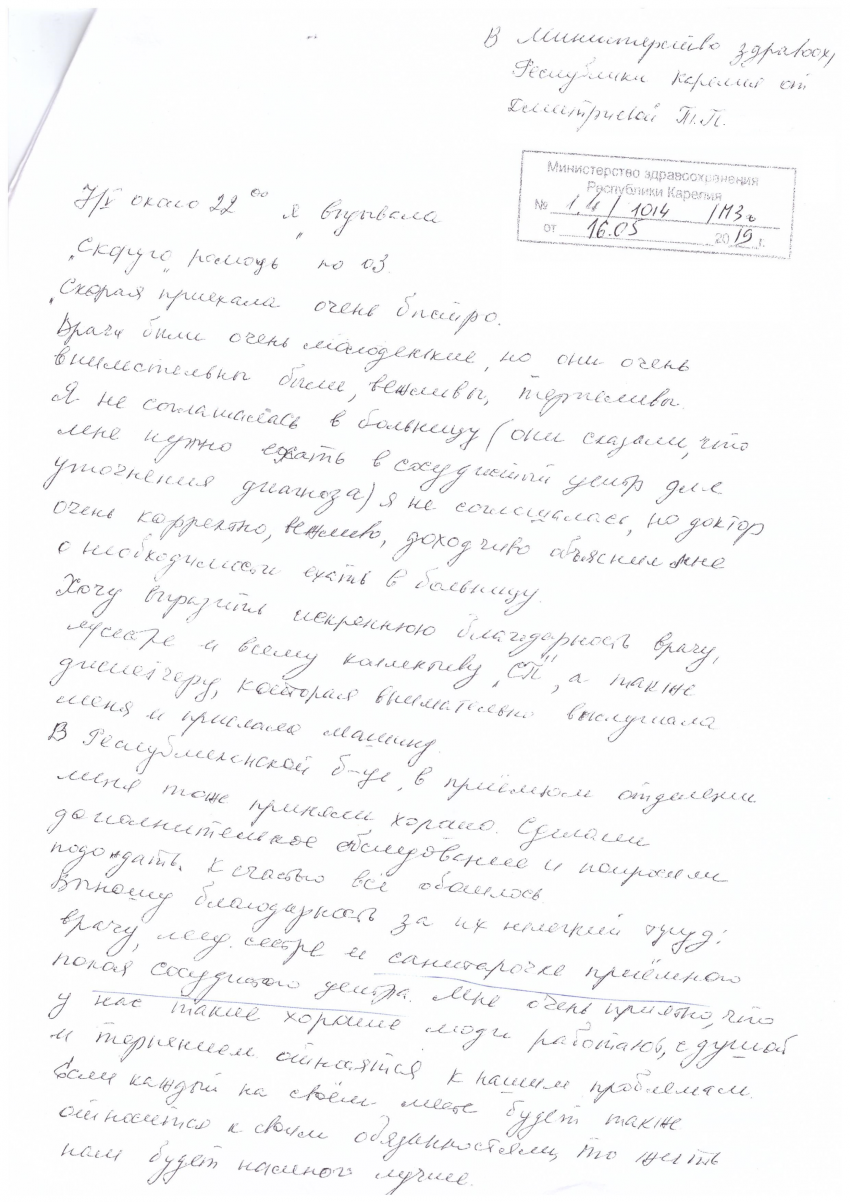 В Министерство здравоох,
Республики Карелия от
Дмитриевой Т.П.
Министерство здравоохранения
Республики Карелия
№ 1.4 / 1014 /МЗ
от 16.05 2019 г.
7/V около 22 00 я вызывала
"Скорую" помощь по 03.
"Скорая приехала очень быстро.
Врачи были очень молоденькие, но они очень
внимательны были, вежливы, терпеливы.
Я не соглашалась в больницу (они сказали, что
мне нужно ехать в сосудистый центр для
уточнения диагноза) я не соглашалась, но доктор
очень корректно, вежливо, доходчиво объяснил мне
о необходимости ехать в больницу.
Хочу выразить искреннюю благодарность врачу,
м/сестре и всему коллективу "СП", а также
диспетчеру, которая внимательно выслушала
меня и прислала машину.
В Республиканской б-це, в приёмном отделении
меня тоже приняли хорошо. Сделали
дополнительное обследование и попросили
подождать. К счастью всё обошлось
Выношу благодарность за их нелегкий труд:
врачу, мед. сестре и санитарочке приёмного
покоя сосудистого центра. Мне очень приятно, что
у нас такие хорошие люди работают, с душой
и терпением относятся к нашим проблемам.
Если каждый на своём месте будет также
относится к своим обязанностям, то жить
нам будет намного лучше.